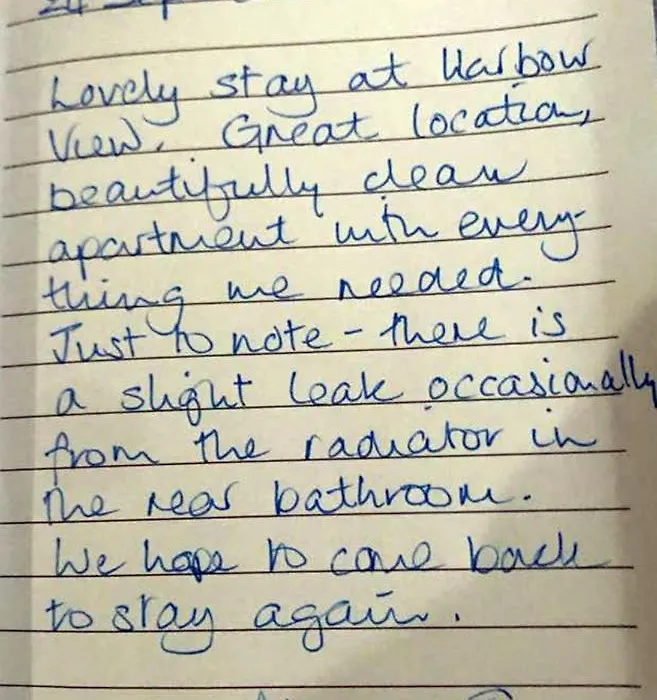 Lovely stay at Harbour
View. Great location,
beautifully clean
apartment with every-
thing we needed.
Just to note - there is
a slight leak occasionally
from the radiator in
the rear bathroom.
We hope to come back
to stay again.